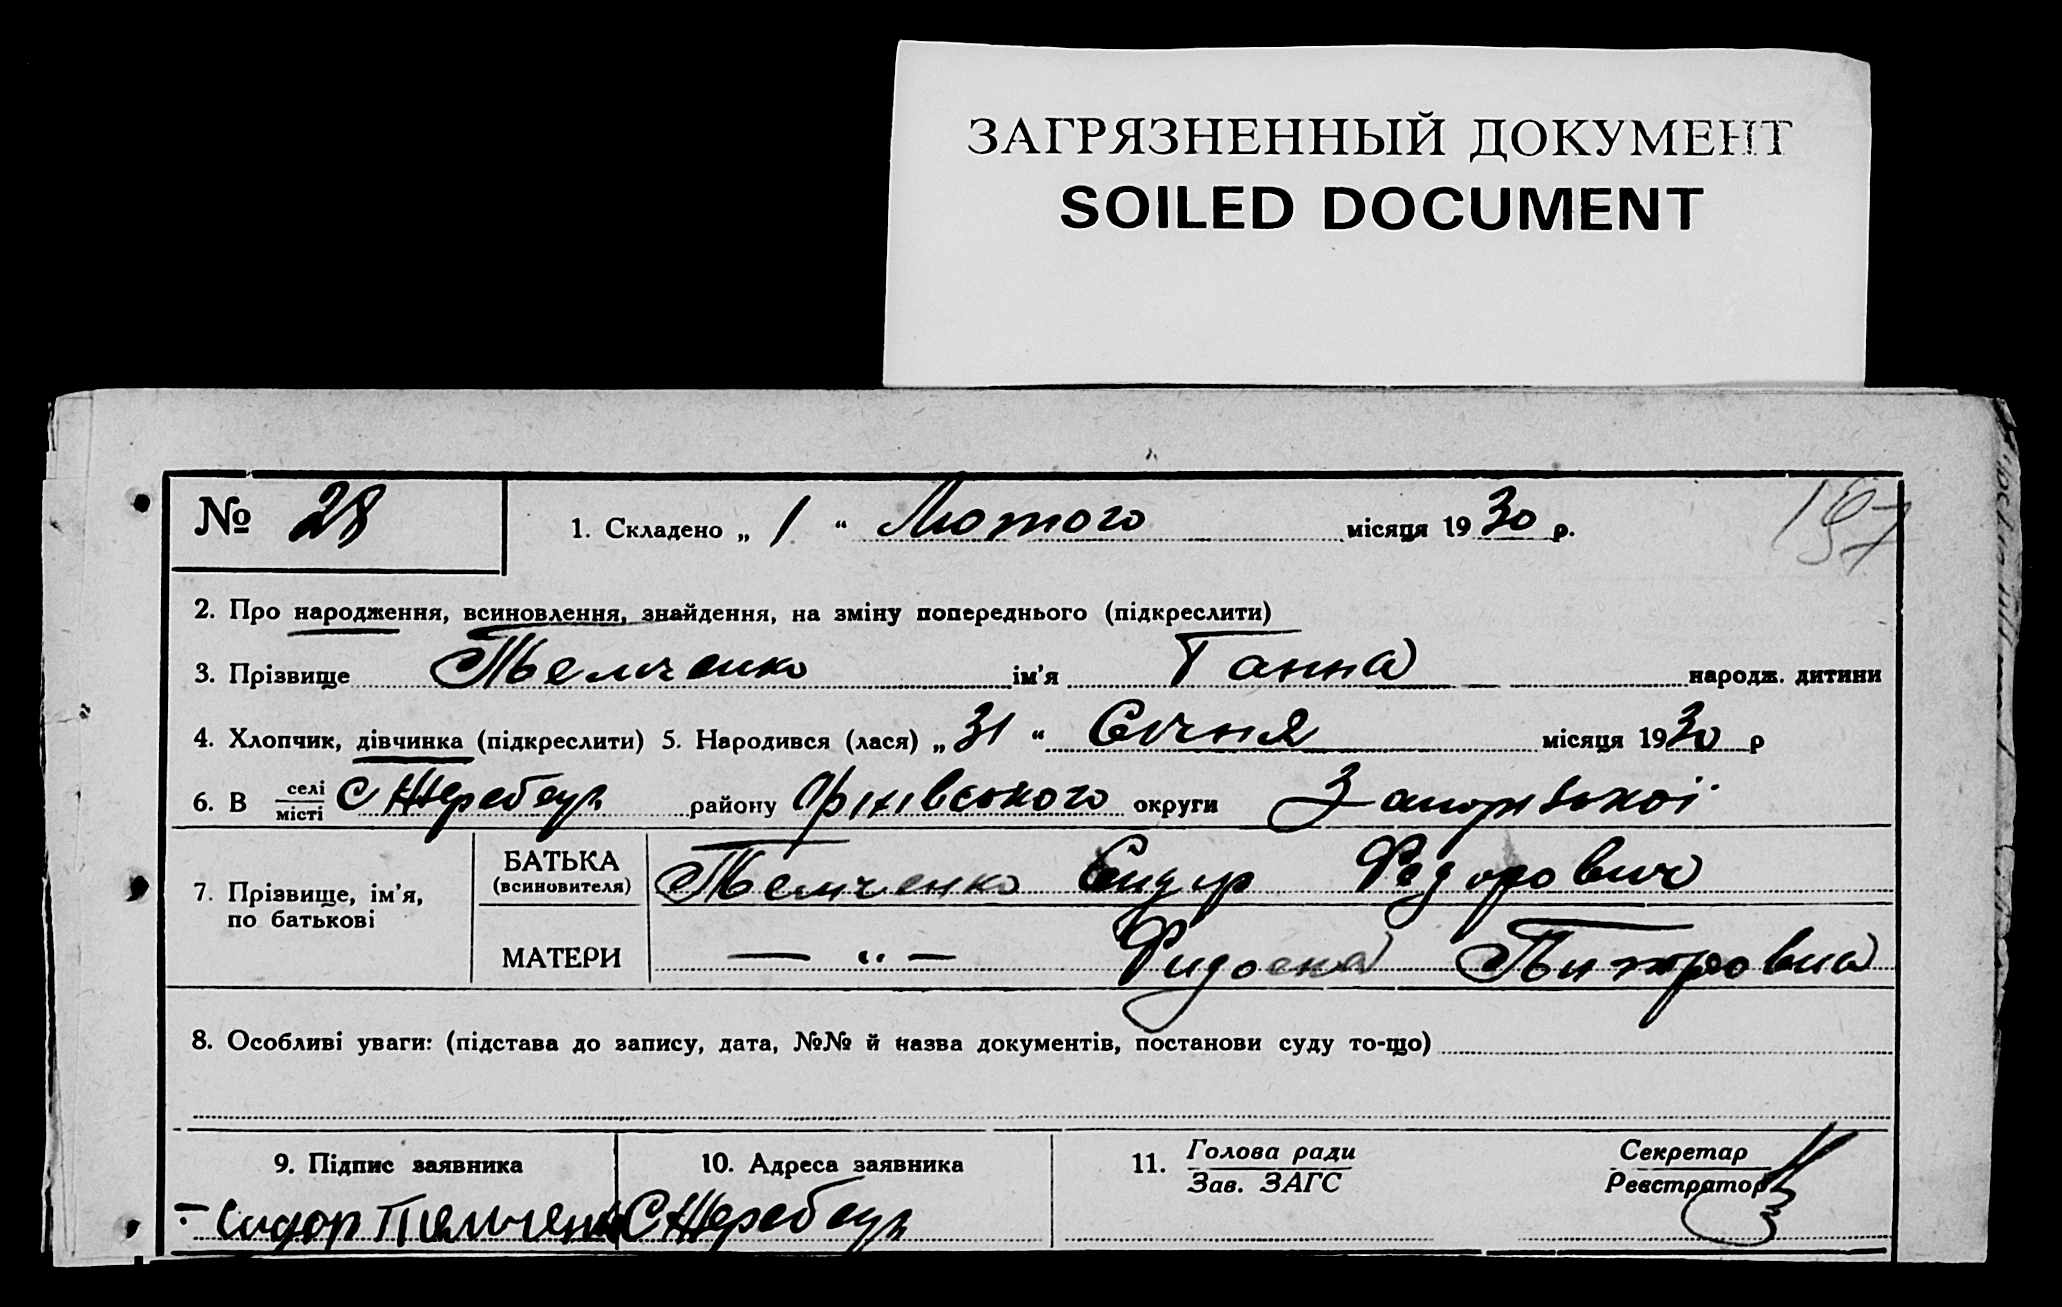 ЗАГРЯЗНЕННЫЙ ДОКУМЕНТ
SOILED DOCUMENT
197
№ 28
1. Складено „ 1 “ Лютого місяця 1930 р.
2. Про народження, всиновлення, знайдення, на зміну попереднього (підкреслити)
3. Прізвище Темченко ім’я Ганна народж. дитини
4. Хлопчик, дівчинка (підкреслити) 5. Народився (лася) „ 31 “ Січня місяця 1930 р
6. В селі місті С Жеребець району Оріхівського округи Запорізької
7. Прізвище, ім’я, по батькові
БАТЬКА (всиновителя) Темченко Сидур Федорович
МАТЕРИ — “ — Федоска Питровна
8. Особливі уваги: (підстава до запису, дата, №№ й назва документів, постанови суду то-що)
9. Підпис заявника
10. Адреса заявника
11. Голова ради Зав. ЗАГС
Секретар Реєстратор
Сидор
С Жеребець